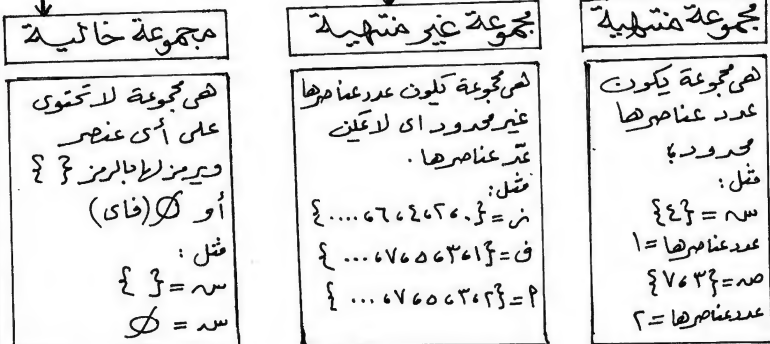 مجموعة منتهية
هي مجموعة يكون
عدد عناصرها
محدود؛
مثل:
س = {٤}
عدد عناصرها = ١
ص = {٣، ٧}
عدد عناصرها = ٢
مجموعة غير منتهية
هي مجموعة تكون عدد عناصرها
غير محدود اى لا يمكن
عدّ عناصرها .
مثل:
ز = {٠، ٢، ٤، ٦، ....}
ف = {١، ٣، ٥، ٧، ...}
م = {٢، ٣، ٥، ٧، ...}
مجموعة خالية
هى مجموعة لا تحتوى
على أى عنصر
ويرمز لها بالرمز { }
أو ∅ (فاى)
مثل :
س = { }
س = ∅